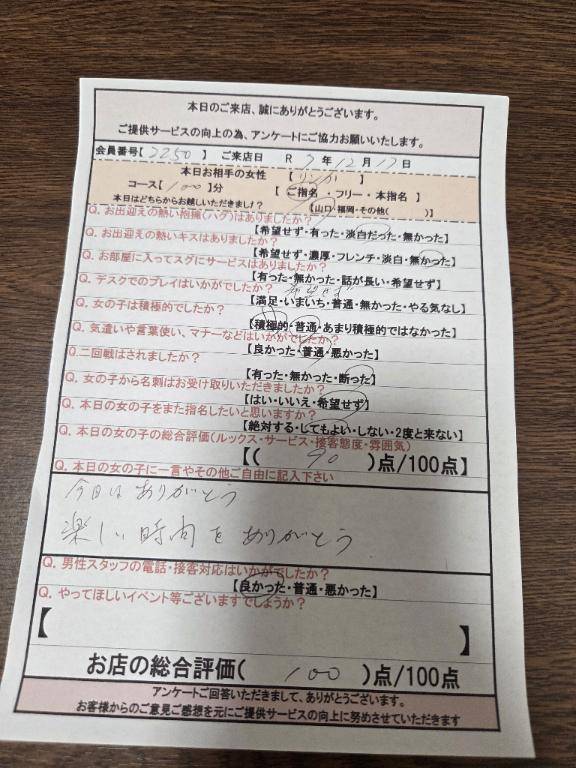 本日のご来店、誠にありがとうございます。
ご提供サービスの向上の為、アンケートにご協力お願いいたします。
会員番号【2250】 ご来店日 R 7年12月17日
本日お相手の女性 【リンカ】
コース【100】分 【ご指名・フリー・本指名】
本日はどちらからお越しいただきまし!? 【山口・福岡・その他( )】
Q. お出迎えの熱い抱擁(ハグ)はありましたか?
【希望せず・有った・淡白だった・無かった】
Q. お出迎えの熱いキスはありましたか?
【希望せず・濃厚・フレンチ・淡白・無かった】
Q. お部屋に入ってスグにサービスはありましたか?
【有った・無かった・話が長い・希望せず】
Q. デスクでのプレイはいかがでしたか? 希望せず
【満足・いまいち・普通・無かった・やる気なし】
Q. 女の子は積極的でしたか?
【積極的・普通・あまり積極的ではなかった】
Q. 気遣いや言葉使い、マナーなどはいかがでしたか?
【良かった・普通・悪かった】
Q.二回戦はされましたか?
【有った・無かった・断った】
Q. 女の子から名刺はお受け取りいただきましたか?
【はい・いいえ・希望せず】
Q. 本日の女の子をまた指名したいと思いますか?
【絶対する・してもよい・しない・2度と来ない】
Q. 本日の女の子の総合評価(ルックス・サービス・接客態度・雰囲気)
【( 90 )点/100点】
Q. 本日の女の子に一言やその他ご自由に記入下さい
今日はありがとう
楽しい時間をありがとう
Q. 男性スタッフの電話・接客対応はいかがでしたか?
【良かった・普通・悪かった】
Q. やってほしいイベント等ございますでしょうか?
【 】
お店の総合評価( 100 )点/100点
アンケートご回答いただきまして、ありがとうございます。
お客様からのご意見ご感想を元にご提供サービスの向上に努めさせていただきます